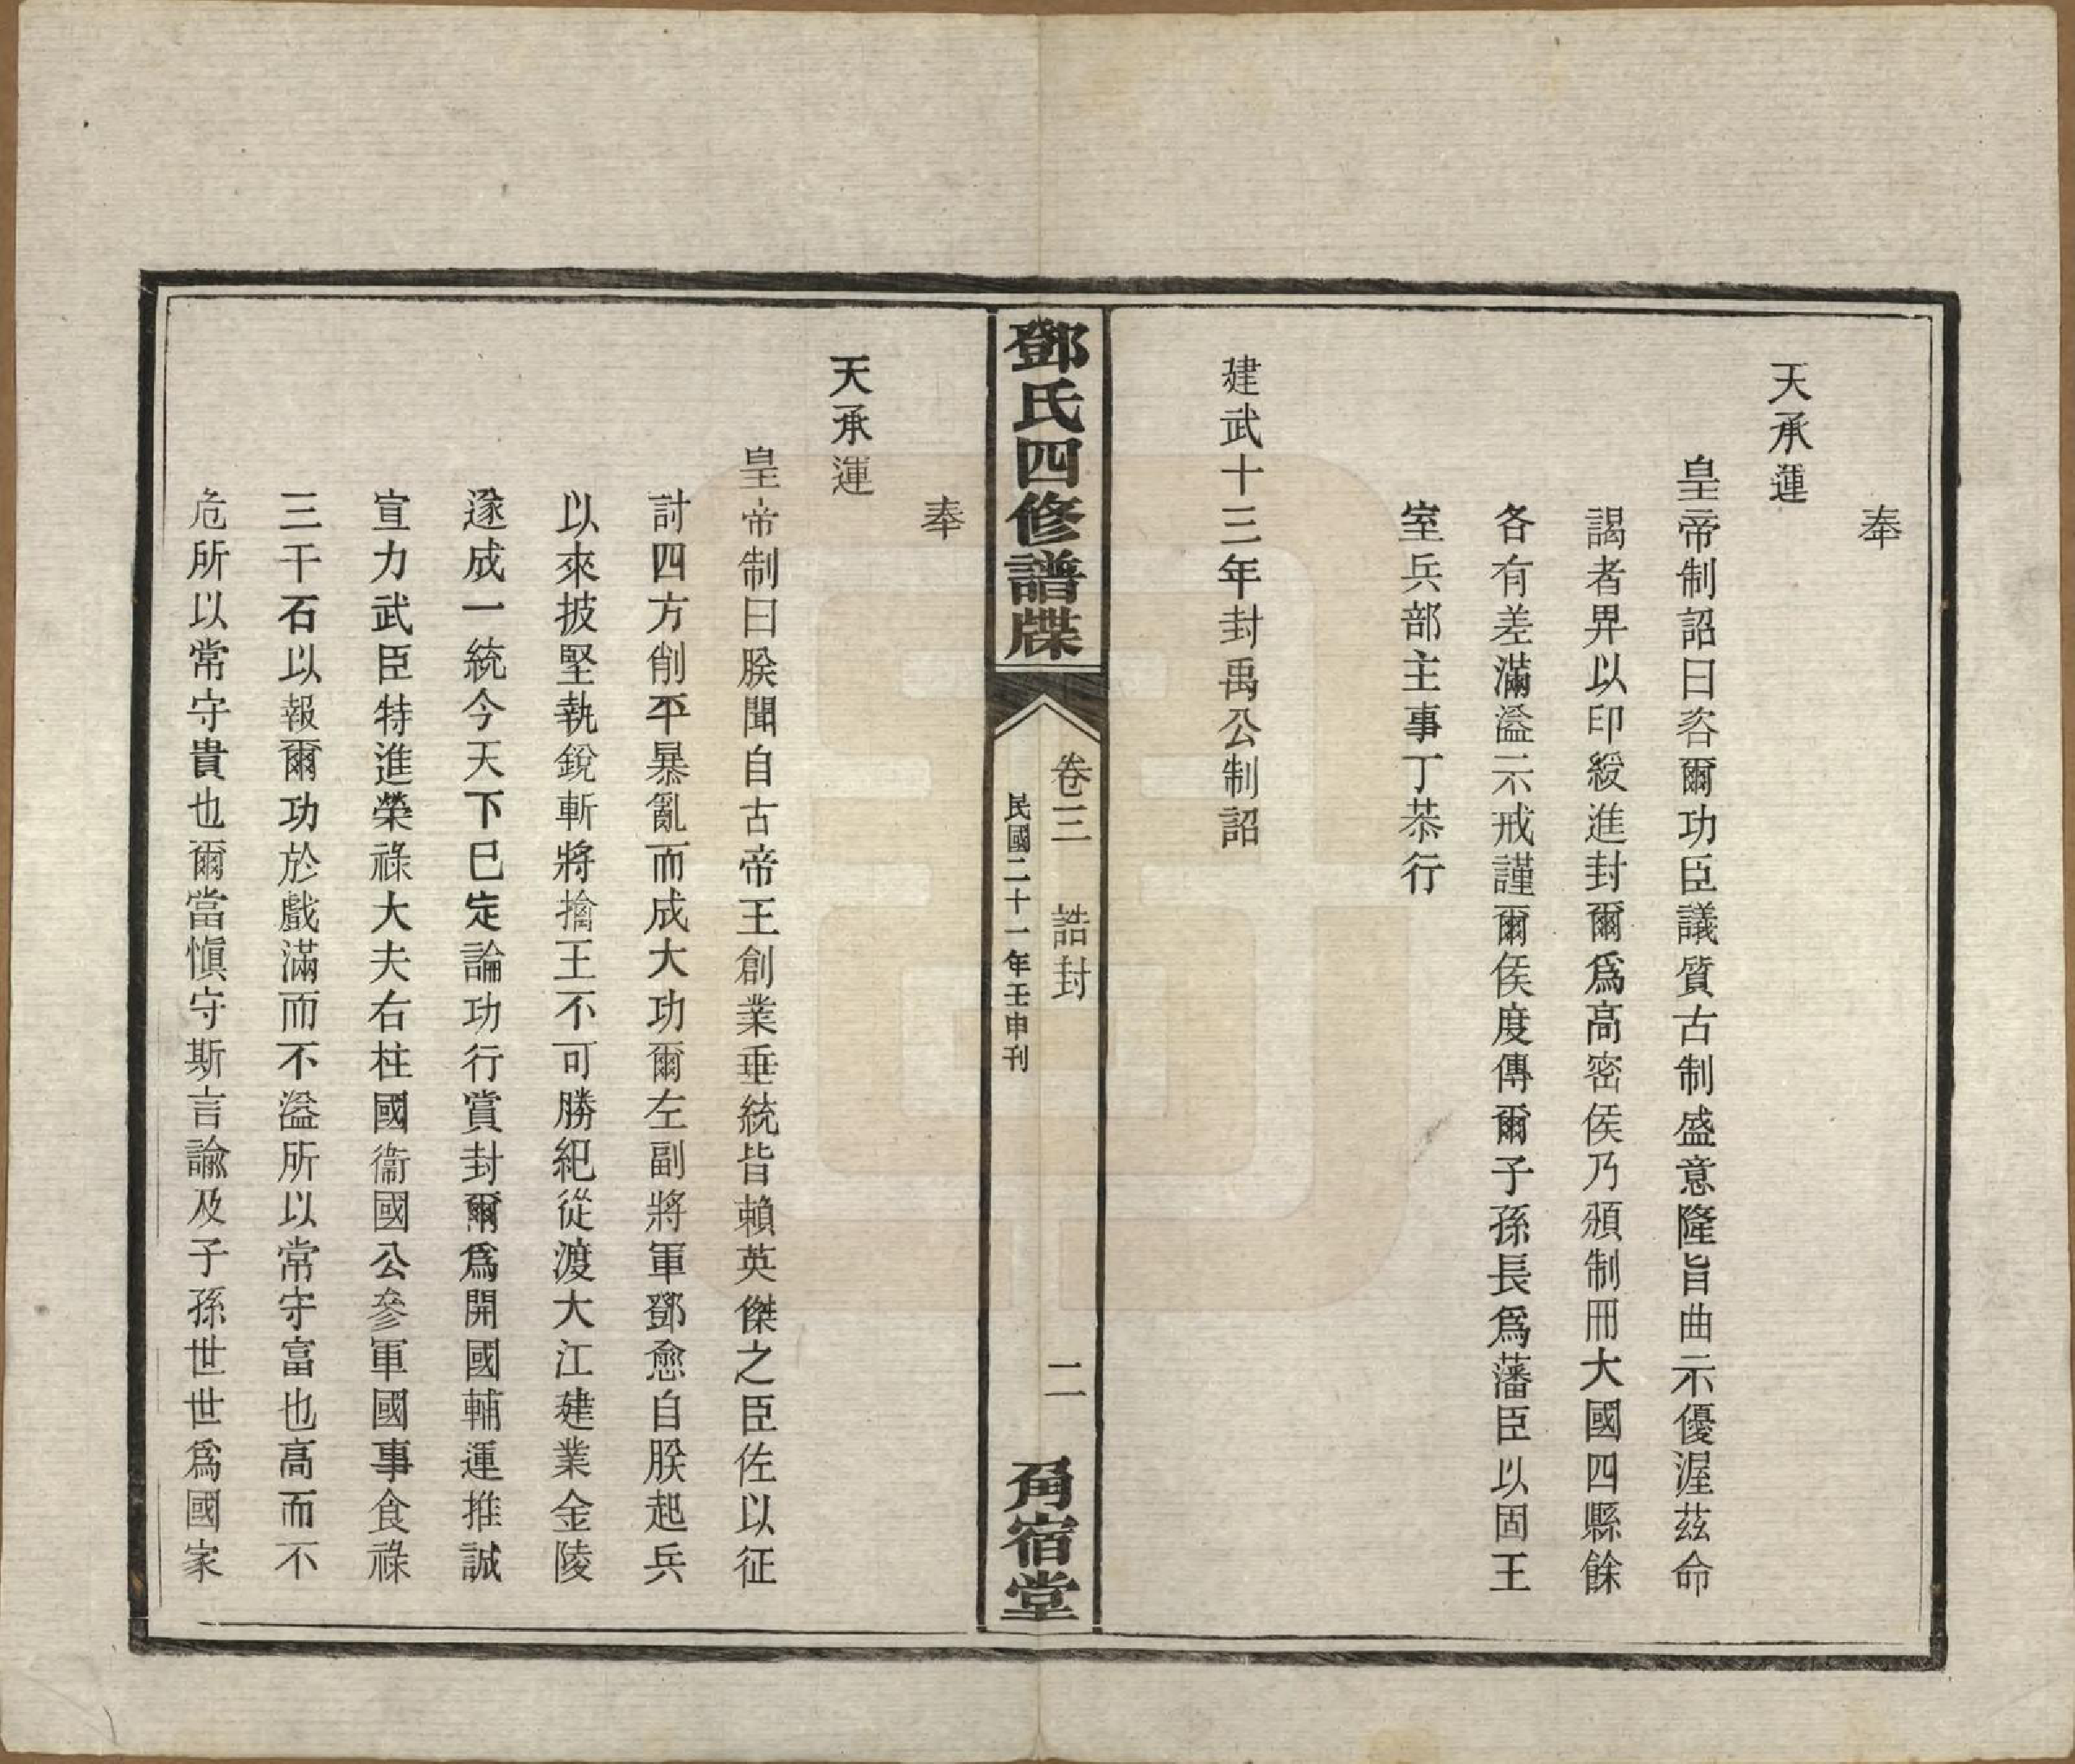 奉
天承運
皇帝制詔曰咨爾功臣議質古制盛意隆旨曲示優渥茲命
謁者畀以印綬進封爾爲高密侯乃頒制冊大國四縣餘
各有差滿溢示戒謹爾侯度傳爾子孫長爲藩臣以固王
室兵部主事丁恭行
建武十三年封禹公制詔
鄧氏四修譜牒
卷三 誥封
二
民國二十一年壬申刊
角宿堂
奉
天承運
皇帝制曰朕聞自古帝王創業垂統皆賴英傑之臣佐以征
討四方削平暴亂而成大功爾左副將軍鄧愈自朕起兵
以來披堅執銳斬將擒王不可勝紀從渡大江建業金陵
遂成一統今天下巳定論功行賞封爾爲開國輔運推誠
宣力武臣特進榮祿大夫右柱國衞國公參軍國事食祿
三千石以報爾功於戲滿而不溢所以常守富也高而不
危所以常守貴也爾當愼守斯言諭及子孫世世爲國家